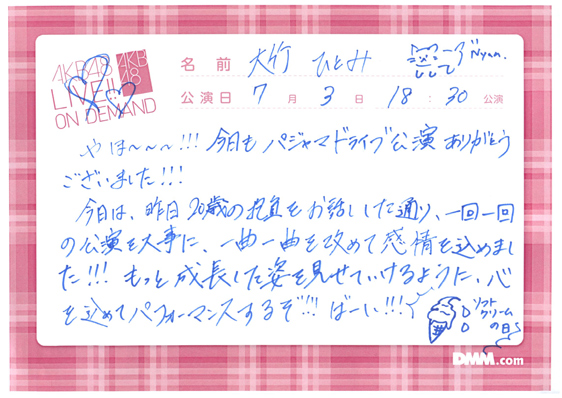 AKB48
LIVE!!
ON DEMAND
AKB
48
名前 大竹 ひとみ
Nyan.
公演日 7月 3日 18:30 公演
やほ〜〜〜!!! 今日も パジャマドライブ公演 ありがとう
ございました!!!
今日は、昨日 20歳の抱負をお話しした通り、一回一回
の公演を大事に、一曲一曲を改めて感情を込めまし
た!!! もっと成長した姿を見せていけるように、心
を込めてパフォーマンスするぞ!!! ばーい!!!
ソフト
クリーム
の日
DMM.com